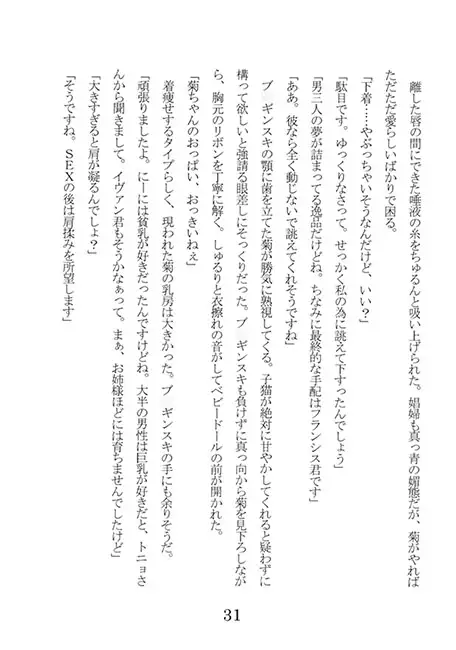 離した唇の間にできた唾液の糸をちゅるんと吸い上げられた。娼婦も真っ青の媚態だが、菊がやれば
ただただ愛らしいばかりで困る。
「下着……やぶっちゃいそうなんだけど、いい？」
「駄目です。ゆっくりなさって。せっかく私の為に誂えて下すったんでしょう」
「男三人の夢が詰まってる逸品だけどね。ちなみに最終的な手配はフランシス君です」
「ああ。彼なら全く動じないで誂えてくれそうですね」
ブ　ギンスキの顎に歯を立てた菊が勝気に熟視してくる。子猫が絶対に甘やかしてくれると疑わずに
構って欲しいと強請る眼差しにそっくりだった。ブ　ギンスキも負けずに真っ向から菊を見下ろしなが
ら、胸元のリボンを丁寧に解く。しゅるりと衣擦れの音がしてベビードールの前が開かれた。
「菊ちゃんのおっぱい、おっきいねぇ」
着痩せするタイプらしく、現われた菊の乳房は大きかった。ブ　ギンスキの手にも余りそうだ。
「頑張りましたよ。にーには貧乳が好きだったんですけどね。大半の男性は巨乳が好きだと、トニョさ
んから聞きまして。イヴァン君もそうかなぁって。まぁ、お姉様ほどには育ちませんでしたけど」
「大きすぎると肩が凝るんでしょ？」
「そうですね。ＳＥＸの後は肩揉みを所望します」
31